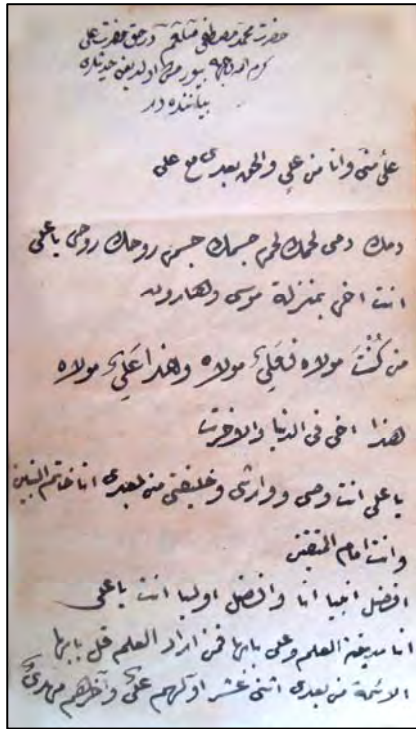 حضرت محمد مصطفى صلعم در حق حضرت على
كرم الله وجهه بيورمش اولديغى حديثلرى
بياننده در
على منى وانا من على والحق بعدى مع على
دمك دمى لحمك لحمى جسمك جسمى روحك روحى يا على
انت اخى بمنزلة موسى وهارون
من كُنْتَ مولاه فعَلِىٌ مولاه وهذا عَلِىٌ مولاه
هذا اخى فى الدنيا والاخرت
يا على انت وصى ووارثى وخليفتى من بعدى انا خاتم النبين
وانت امام المتقين
افضل انبيا انا وافضل اوليا انت يا على
انا مدينة العلم وعلى بابها فمن اراد العلم قل بابها
الائمة من بعدى اثنى عشر اولهم علىٌ وآخرهم مهدىٌ